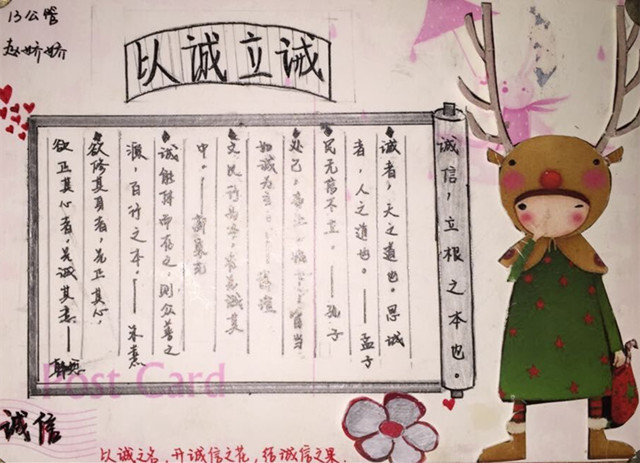 13公管
赵娇娇
以诚立诚
诚信，立根之本也。
诚者，天之道也。思诚
者，人之道也。——孟子
民无信不立。——孔子
处己，皆当
诚为主
文以行为本，在先诚其
中。
诚能体而存之，则众善之
源，百行之本。——朱熹
欲修其身者，先正其心，
欲正其心者，先诚其意——韩愈
Post Card
诚信
以诚之名，开诚信之花，结诚信之果.